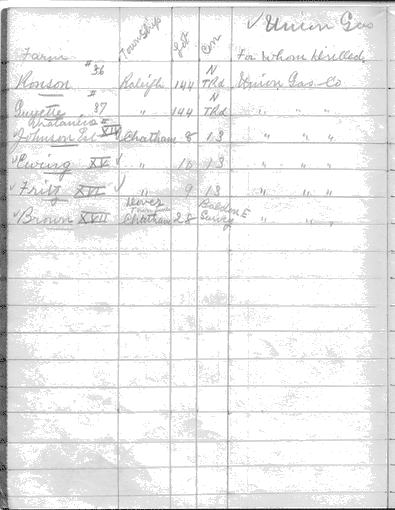 ✓ Union Gas
Farm Township Lot Con For Whom Drilled
Ronson #36 Raleigh 144 N TRd Union Gas Co
Guyette #37 " 144 N TRd " " "
Johnson Est XIV Chatham 8 13 " " "
✓ Ewing XV ✓ " 10 13 " " "
✓ Fritz XVI ✓ " 9 13 " " "
✓ Brown XVII Dover Township Chatham 28 Baldoon E Survey " " "